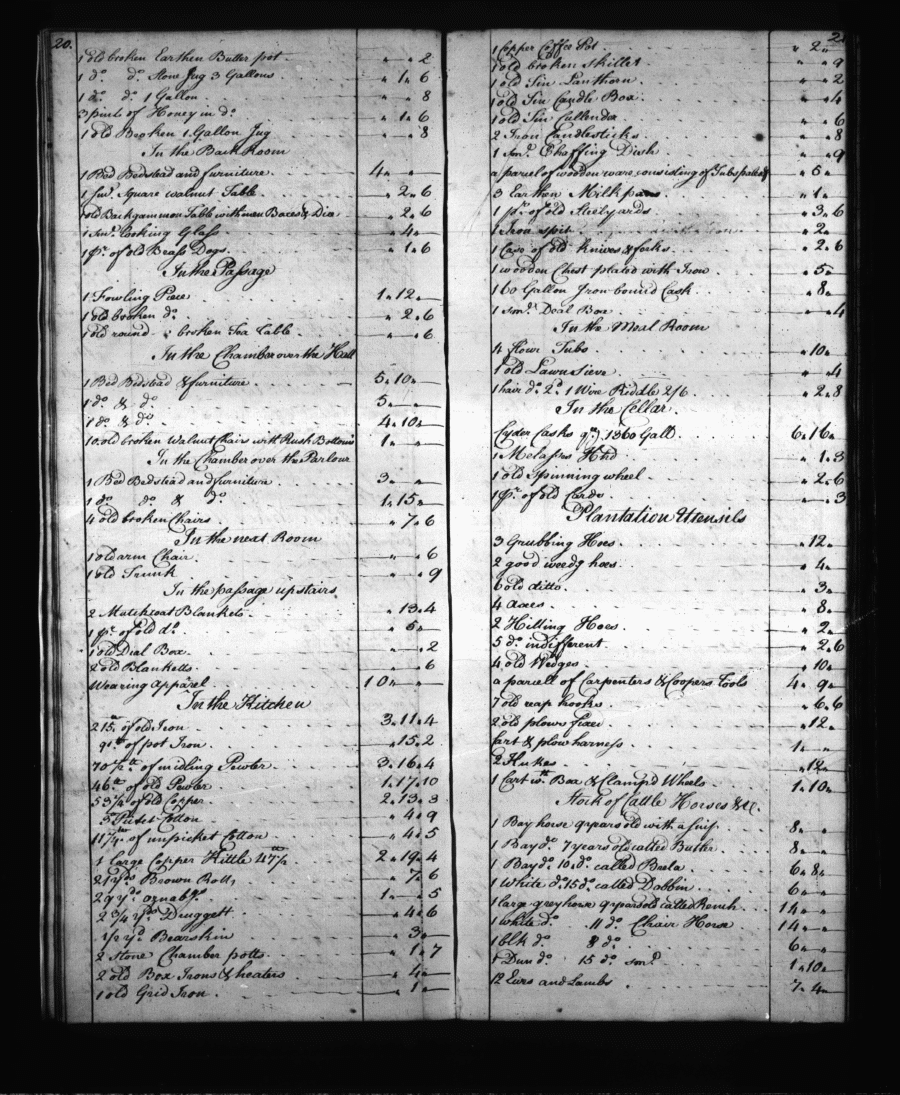 20.
1 old broken Earthen Butter pot " " 2
1 do. do. Stone Jug 3 Gallons " 1 " 6
1 do. do. 1 Gallon " " 8
3 pints of Honey in do. " 1 " 6
1 old Broken 1 Gallon Jug " " 8
In the Back Room
1 Bed Bedstead and furniture 4 " "
1 sml. Square walnut Table " 2 " 6
1 old Backgammon Table with men Boxes & Dia " 2 " 6
1 sml. Looking Glass " 4 "
1 pr. of old Brass Dogs " 1 " 6
In the Passage
1 Fowling Piece 1 " 12 "
1 old broken do. " 2 " 6
1 old round broken Tea Table " " 6
In the Chamber over the Hall
1 Bed Bedstead & furniture 5 " 10 "
1 do. & do. 5 " "
1 do. & do. 4 " 10 "
10 old broken Walnut Chairs with Rush Bottoms 1 " "
In the Chamber over the Parlour
1 Bed Bedstead and furniture 3 " "
1 do. do. & do. 1 " 15 "
4 old broken Chairs " 7 " 6
In the next Room
1 old arm Chair " " 6
1 old Trunk " " 9
In the passage upstairs
2 Matchcoat Blankets " 13 " 4
1 pr. of old do. " 5 "
1 old Deal Box " " 2
2 old Blanketts " " 6
Wearing Apparel 10 " "
In the Kitchen
215 lb. of old Iron 3 " 11 " 4
91 lb. of pot Iron " 15 " 2
70 1/2 lb. of midling Pewter 3 " 16 " 4
46 lb. of old Pewter 1 " 17 " 10
53 1/4 of old Copper 2 " 13 " 3
Cotton " 4 " 9
11 1/4 lb. of unpicket Cotton " 4 " 5
1 large Copper Kittle 47 lb 1/2 2 " 19 " 4
21 yds. Brown Rolls " 7 " 6
29 yds. oznabgs. 1 " " 5
2 3/4 yds. Druggett " 4 " 6
1/2 yd. Bearskin " 3 "
2 Stone Chamber potts " 1 " 7
2 old Box Irons & heaters " 4 "
1 old Grid Iron " 1 "
21
1 Copper Coffee Pot " 2 "
1 old broken Skillet " " 9
1 old Tin Lanthorn " " 2
1 old Tin Candle Box " " 4
1 old Tin Cullender " " 6
2 Iron Candlesticks " " 8
1 sml. Chaffing Dish " " 9
a parcel of wooden ware consisting of Tubs pails &c " 5 "
3 Earthen Milk pans " 1 "
1 pr. of old Steelyards " 3 " 6
1 Iron spit " 2 "
1 Case of old knives & forks " 2 " 6
1 wooden Chest plated with Iron " 5 "
1 60 Gallon Iron bound Cask " 8 "
1 sml. Deal Box " " 4
In the Meal Room
4 flour Tubs " 10 "
1 old Lawn Sieve " " 4
1 hair do. 2d. 1 Wire Riddle 2/6 " 2 " 8
In the Cellar
Cyder Casks qty. 1360 Gall 6 " 16 "
1 Melasses Hhd " 1 " 3
1 old Spinning wheel " 2 " 6
1 pr. of old Cards " " 3
Plantation Utensils
3 Grubbing Hoes " 12 "
2 good weedg hoes " 4 "
6 old ditto " 3 "
4 axes " 8 "
2 Hilling Hoes " 2 "
5 do. indifferent " 2 " 6
4 old Wedges " 10 "
a parcell of Carpenters & Coopers Tools 4 " 9 "
7 old reap hooks " 6 " 6
2 old plows " 12 "
Cart & plow harness 1 " "
2 Flukes " 12 "
1 Cart wth. Box & Clampd Wheels 1 " 10 "
Stock of Cattle Horses &c.
1 Bay horse 9 years old with a Snip 8 " "
1 Bay do. 7 years old called Butler 8 " "
1 Bay do. 10 do. called Beela 6 " 8 "
1 White do. 15 do. called Dobbin 6 " "
1 large grey horse 9 years old called Rench 14 " "
1 white do. 11 do. Chair Horse 14 " "
1 blk do. 8 do. 6 " "
1 Dun do. 15 do. sml. 1 " 10 "
12 Ewes and Lambs 7 " 4 "